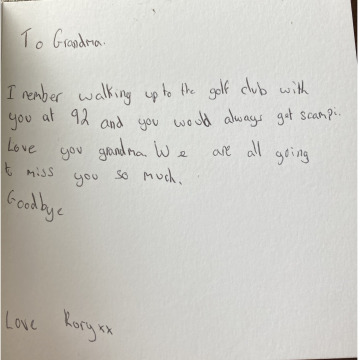 To Grandma.
I rember walking up to the golf club with
you at 92 and you would always got scampi.
Love you grandma. We are all going
t miss you so much.
Goodbye
Love Rory xx